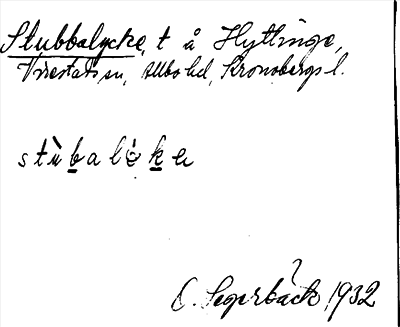 Stubbalycke, t å Hyttinge,
Virestads sn, Allbo hd, Kronobergs l.
stùbalỳke
C. Segerbäck 1932